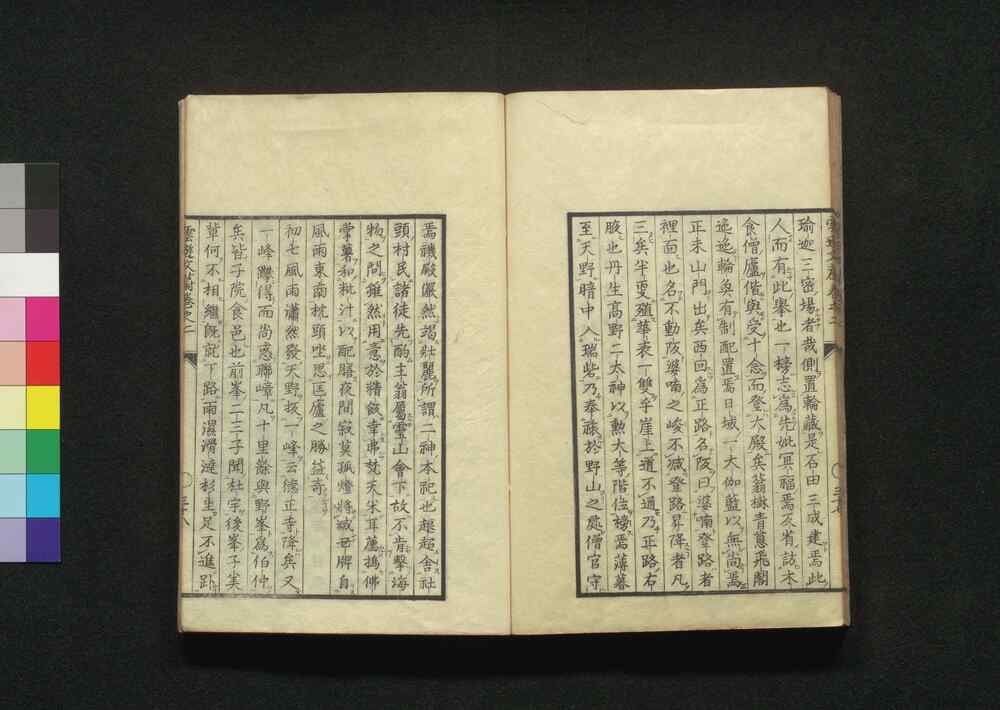 瑜迦三密場者哉側置輪藏是石田三成建焉此
人而有此舉也一榜志爲先妣冥福焉及省訪木
食僧廬偕與受十念而登大殿矣翁樾青蔥飛閣
逶迤輪奐有制配置焉日域一大伽藍以無尚焉
正未山門出矣西回爲正路名阪曰婆喃登路者
裡面也名不動阪婆喃之峻不減登路昇降者凡
三矣半更殖華表一雙乎崖上道不通乃正路右
腋也丹生高野二太神以勲大等階位榜焉薄暮
至天野暗中入瑞砦乃奉蔬於野山之處僧官守
焉禨殿儼然塏壯麗所謂二神本祀也趣超舍社
頭村民諸徒先酌主翁屬雪山會下故不肯擊海
物之問雖然用意於精餼幸弗梵天宋耳蘆搗佛
掌薯和粃汁以配膳夜間寂莫孤燈將滅丑牌自
風雨東南枕頭坐思匡廬之勝益奇
初七風雨瀟然發天野坂一峰云德正寺降矣又
一峰躋得而尚惑聯嶂凡十里餘與野峯爲伯仲
矣皆子院食邑也前峯二三子聞杜宇後峯子美
輩何不相繼既就下路雨濕滑澾杉生足不進趾